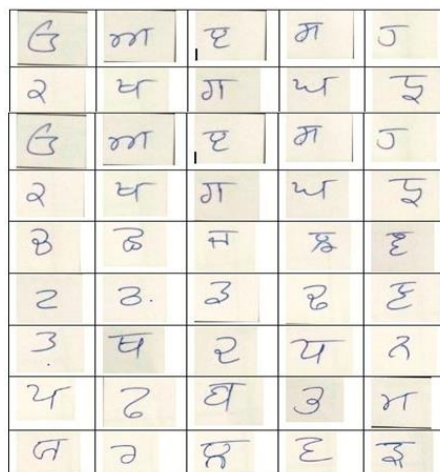 ੳ ਅ ੲ ਸ ਹ
ਕ ਖ ਗ ਘ ਙ
ੳ ਅ ੲ ਸ ਹ
ਕ ਖ ਗ ਘ ਙ
ਚ ਛ ਜ ਝ ਞ
ਟ ਠ ਡ ਢ ਣ
ਤ ਥ ਦ ਧ ਨ
ਪ ਫ ਬ ਭ ਮ
ਯ ਰ ਲ ਵ ੜ